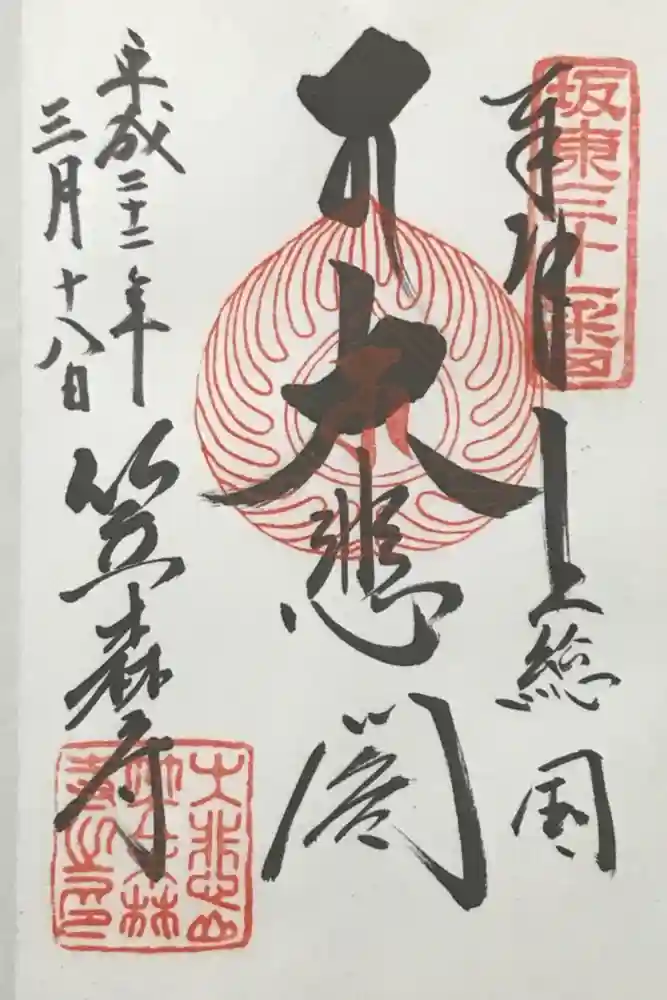 坂東三十一番
奉拝 上総国
大悲閣
平成二十二年
三月十八日
笠森寺
大悲山
笠森寺印